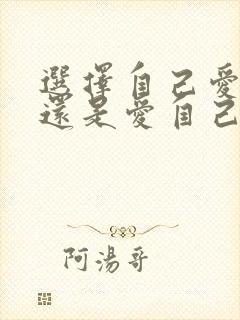 選擇自己愛
還是愛自己
阿湯哥